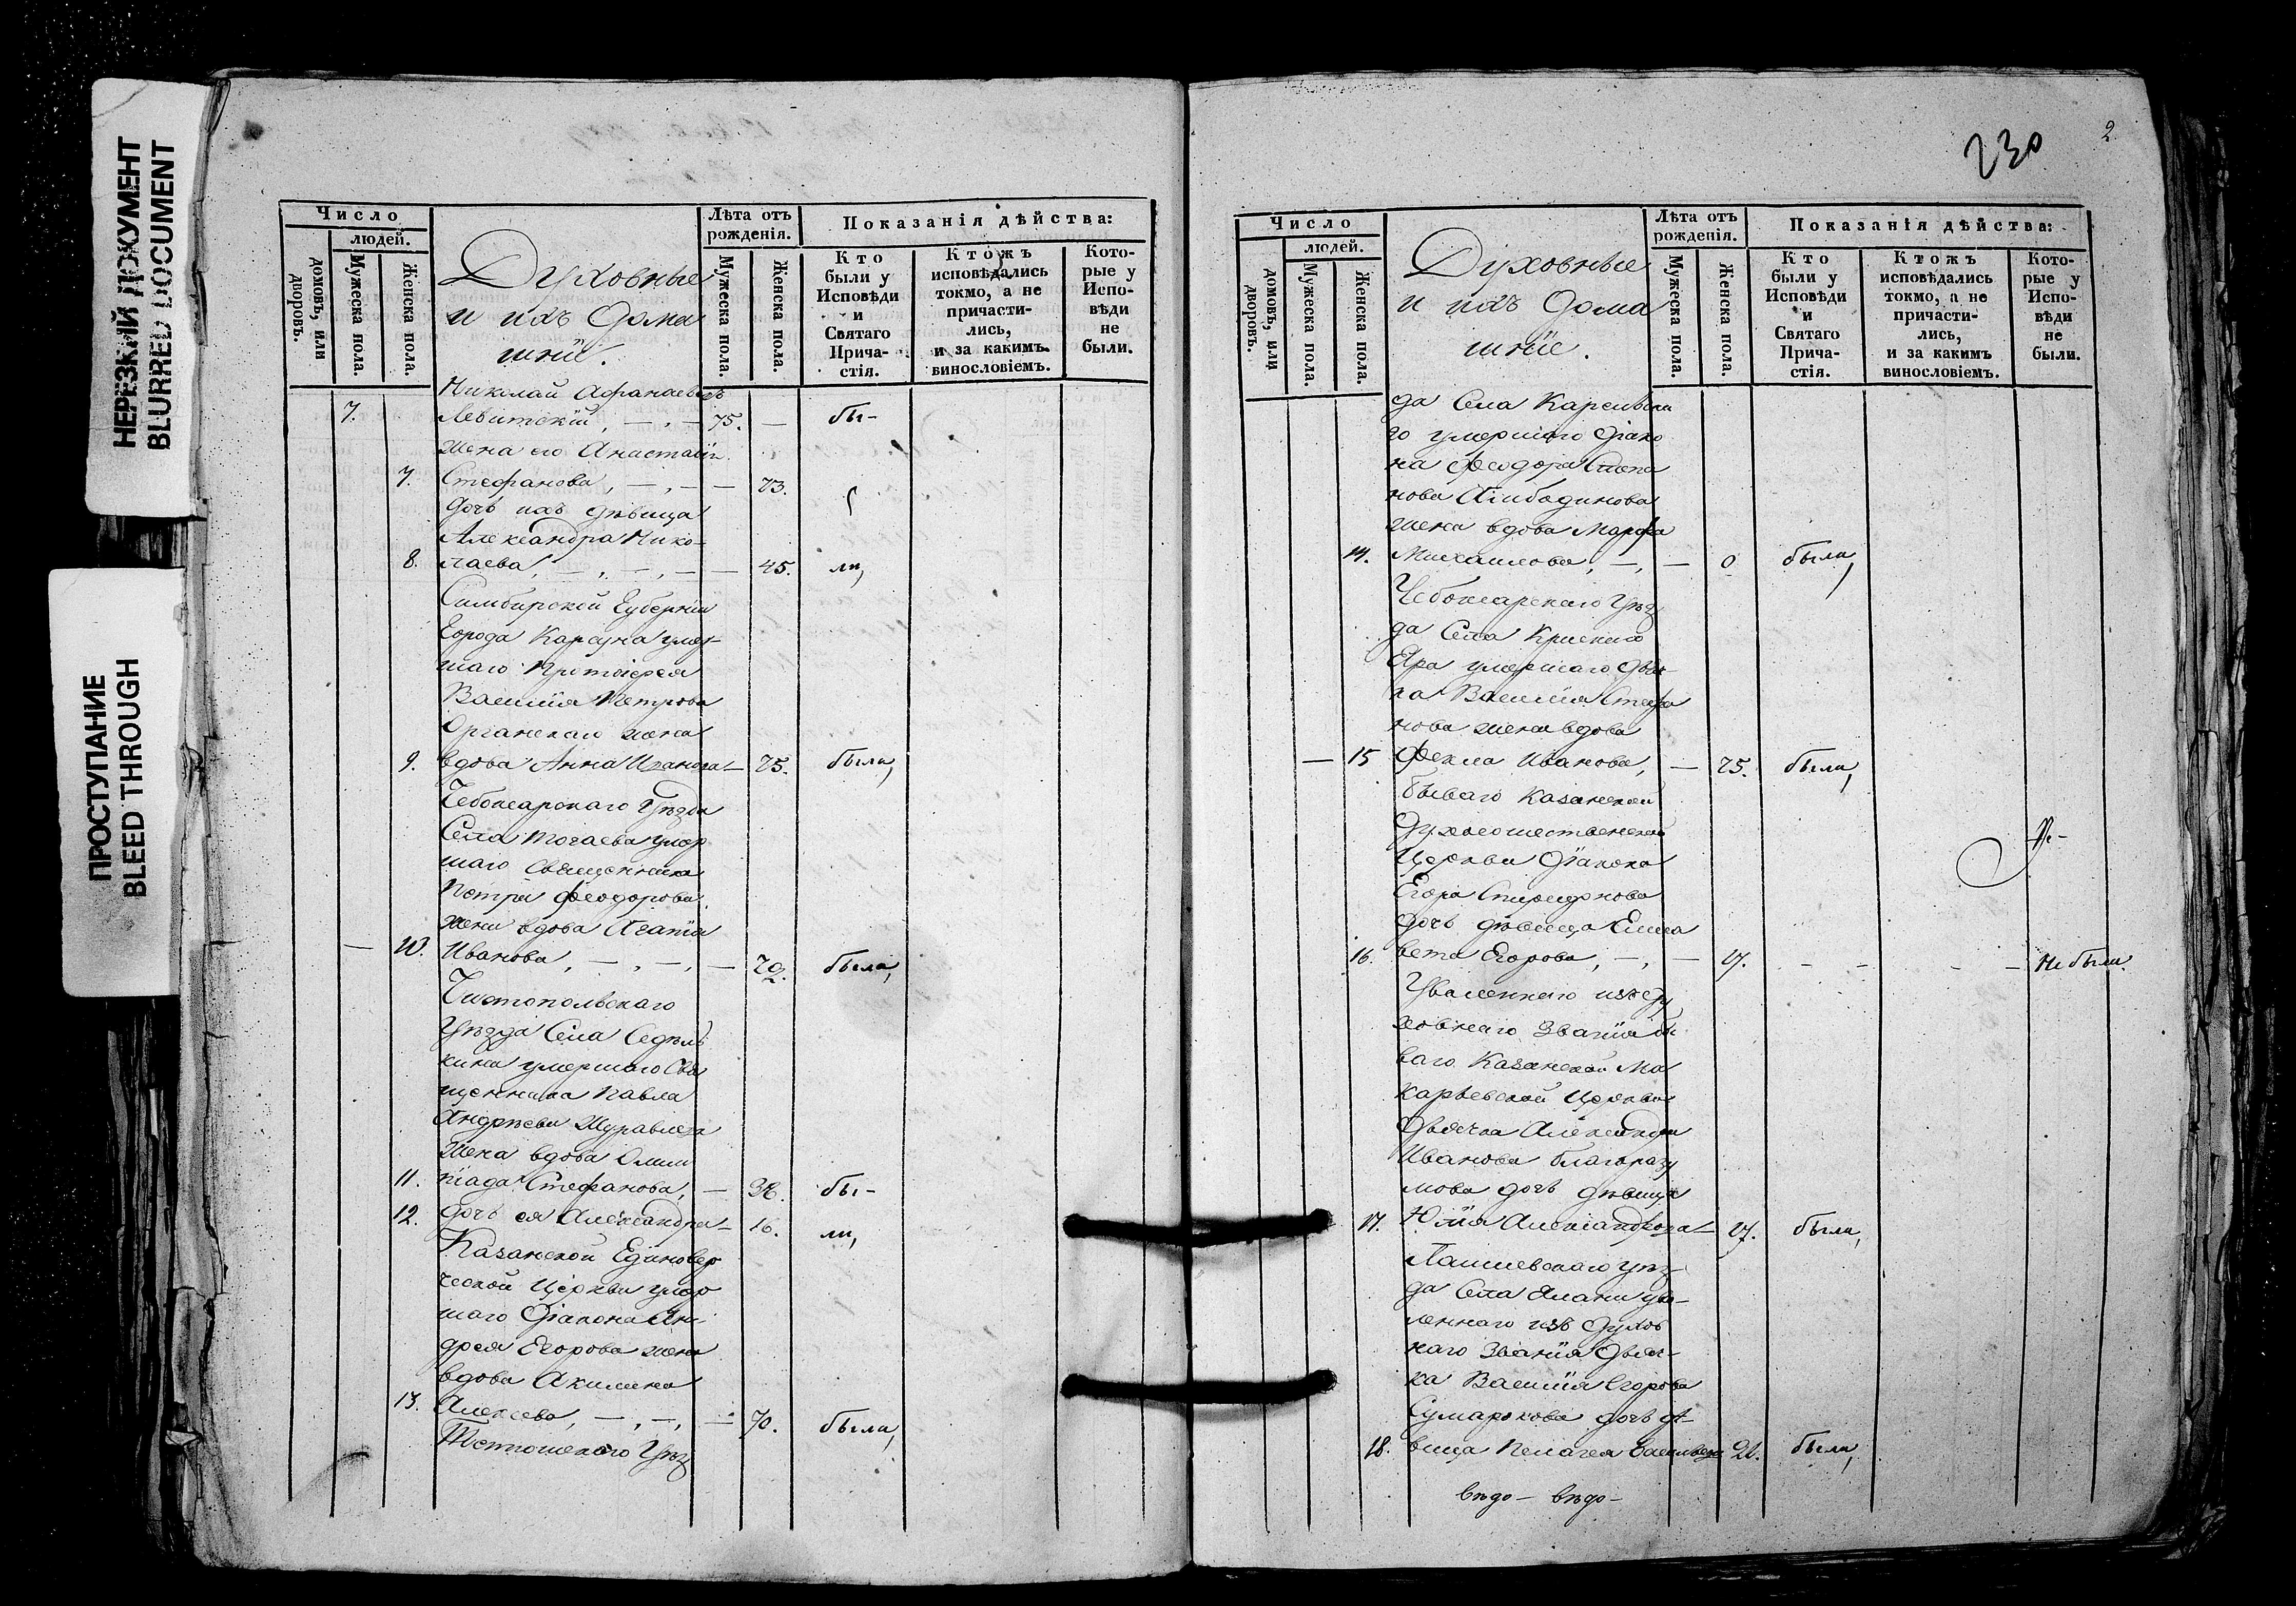 НЕРЕЗКИЙ ДОКУМЕНТ
BLURRED DOCUMENT
ПРОСТУПАНИЕ
BLEED THROUGH
Число
людей.
домовъ, или дворовъ.
Мужеска пола.
Женска пола.
Духовные
и ихъ Дома
шніе.
Лѣта отъ
рожденія.
Мужеска пола.
Женска пола.
Показанія дѣйства:
Кто
были у
Исповѣди
и
Святаго
Прича-
стія.
Ктожъ
исповѣдались
токмо, а не
причасти-
лись,
и за какимъ
винословіемъ.
Кото-
рые у
Испо-
вѣди
не
были.
Николай Афанасьевъ
7. Левитскій, — , — 75. — бы-
жена его Анастасія
7. Стефанова, — , — — 73.
дочь ихъ дѣвица
Александра Нико-
8. лаева, — , — , — — 45. ли,
Симбирской Губерніи
Города Карсуна умер-
шаго Протоіерея
Василія Петрова
Органскаго жена
9. вдова Анна Иванова — 75. была,
Чебоксарскаго Уѣзда
Села Тогаева умер
шаго Священника
Петра Феодорова
жена вдова Агатія
— 10. Иванова, — , — , — 70. была,
Чистопольскаго
Уѣзда Села Седѣль
кина умершаго Свя
щенника Павла
Андреева Журавлева
жена вдова Олим
11. піада Стефанова, — 38. бы-
12. дочь ея Александра — 16. ли,
Казанской Единовер
ческой Церкви умер
шаго Діакона Ан-
дрея Егорова жена
вдова Акилина
13. Алексева, — , — , — 70. была,
Тетюшскаго Уѣз
230
2
Число
людей.
домовъ, или дворовъ.
Мужеска пола.
Женска пола.
Духовные
и ихъ Дома
шніе.
Лѣта отъ
рожденія.
Мужеска пола.
Женска пола.
Показанія дѣйства:
Кто
были у
Исповѣди
и
Святаго
Прича-
стія.
Ктожъ
исповѣдались
токмо, а не
причасти-
лись,
и за какимъ
винословіемъ.
Кото-
рые у
Испо-
вѣди
не
были.
да Села
го умершаго Діако
на Феодора Степа
нова
жена вдова Марфа
14. Михаилова, — , — 0 была,
Чебоксарскаго Уѣз
да Села Крискаго
Яра умершаго Дьяч-
ка Василія Стефа
нова жена вдова
— 15 Фекла Иванова, — 75. была,
бываго Казанской
Духосошественской
Церкви Діакона
Егора Спиридонова
дочь дѣвица Елиса
16. вета Егорова, — , — 17. — — — — Не была.
Уволеннаго изъ Ду
ховнаго Званія бы
ваго Казанской Ма
карьевской Церкви
Дьячка Александра
Иванова Благоразу
мова дочь дѣвица
17. Юлія Александрова — 17. была,
Лаишевскаго Уѣз
да Села Алани уво-
леннаго изъ Духов
наго Званія Дьяч-
ка Василія Егорова
Сумарокова дочь дѣ-
18. вица Пелагея Васильева 21. была,
вѣдо- вѣдо-